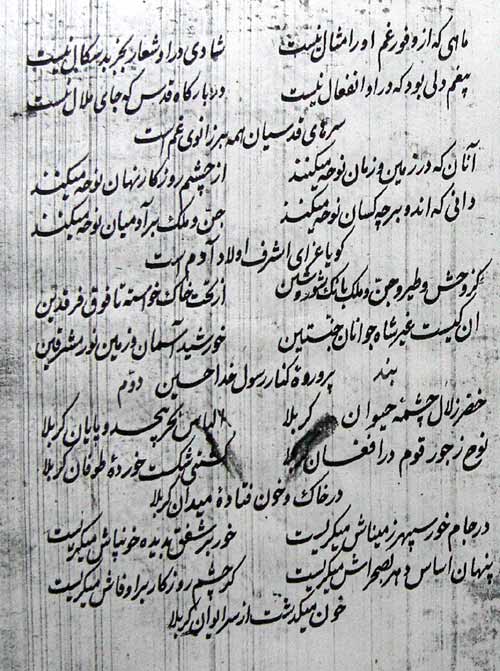 ماهی که از وفور غم او را مثال نیست شادی در او شعار بجز بد سکال نیست
بیغم دلی بود که در او انفعال نیست در بارگاه قدس که جای ملال نیست
سرهای قدسیان همه بر زانوی غم است
آنان که در زمین و زمان نوحه میکنند از چشم روزگار نهان نوحه میکنند
دانی که اند و بر چه کسان نوحه میکنند جن و ملک بر آدمیان نوحه میکنند
گویا عزای اشرف اولاد آدم است
کز وحش و طیر و جن و ملک بانگ شور و شین از تحت خاک خواسته تا فوق فرقدین
ان کیست غیر شاه جوانان جنتین خورشید آسمان و زمین نور مشرقین
بند پرورده کنار رسول خدا حسین دوم
خضر زلال چشمه حیوان کربلا الماس و پایان کربلا
نوح ز جور قوم در افغان کربلا کشتی شکست خورده طوفان کربلا
در خاک و خون فتاده میدان کربلا
در جام خور سپهر ز میناش میگریست خور بر شفق بدیده خونپاش میگریست
پنهان اساس دهر بصحراش میگریست گر چشم روزگار بر او فاش میگریست
خون میگذشت از سر ایوان کربلا